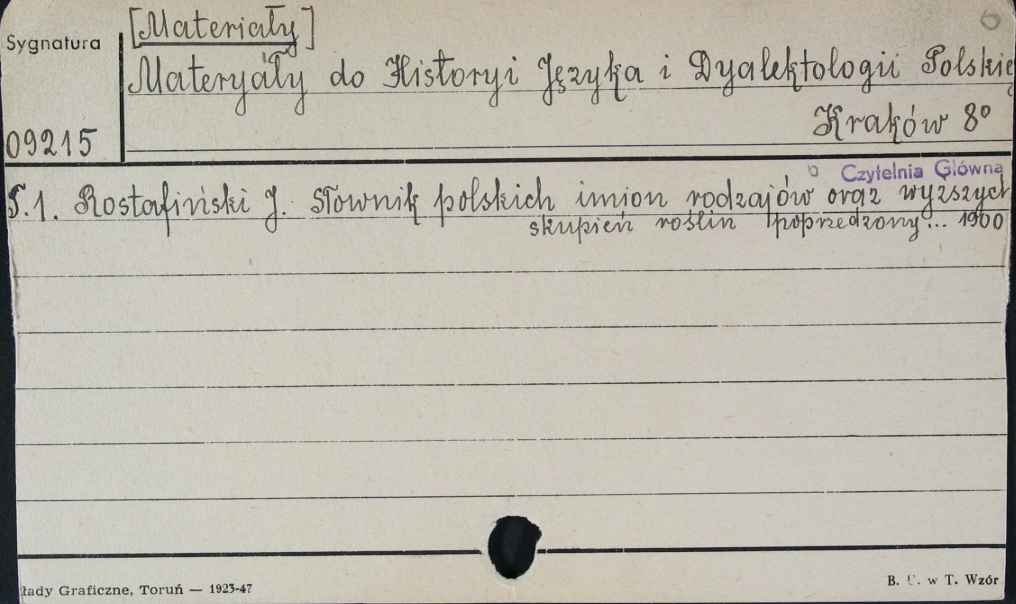 [Materiały]
6
Sygnatura
Materyały do Historyi Języka i Dyalektologii Polskie
Kraków 8°
09215
Czytelnia Główna
T.1. Rostafiński J. Słownik polskich imion rodzajów oraz wyższych
skupień roślin poprzedzony... 1900
łady Graficzne, Toruń — 1923-47
B. U. w T. Wzór